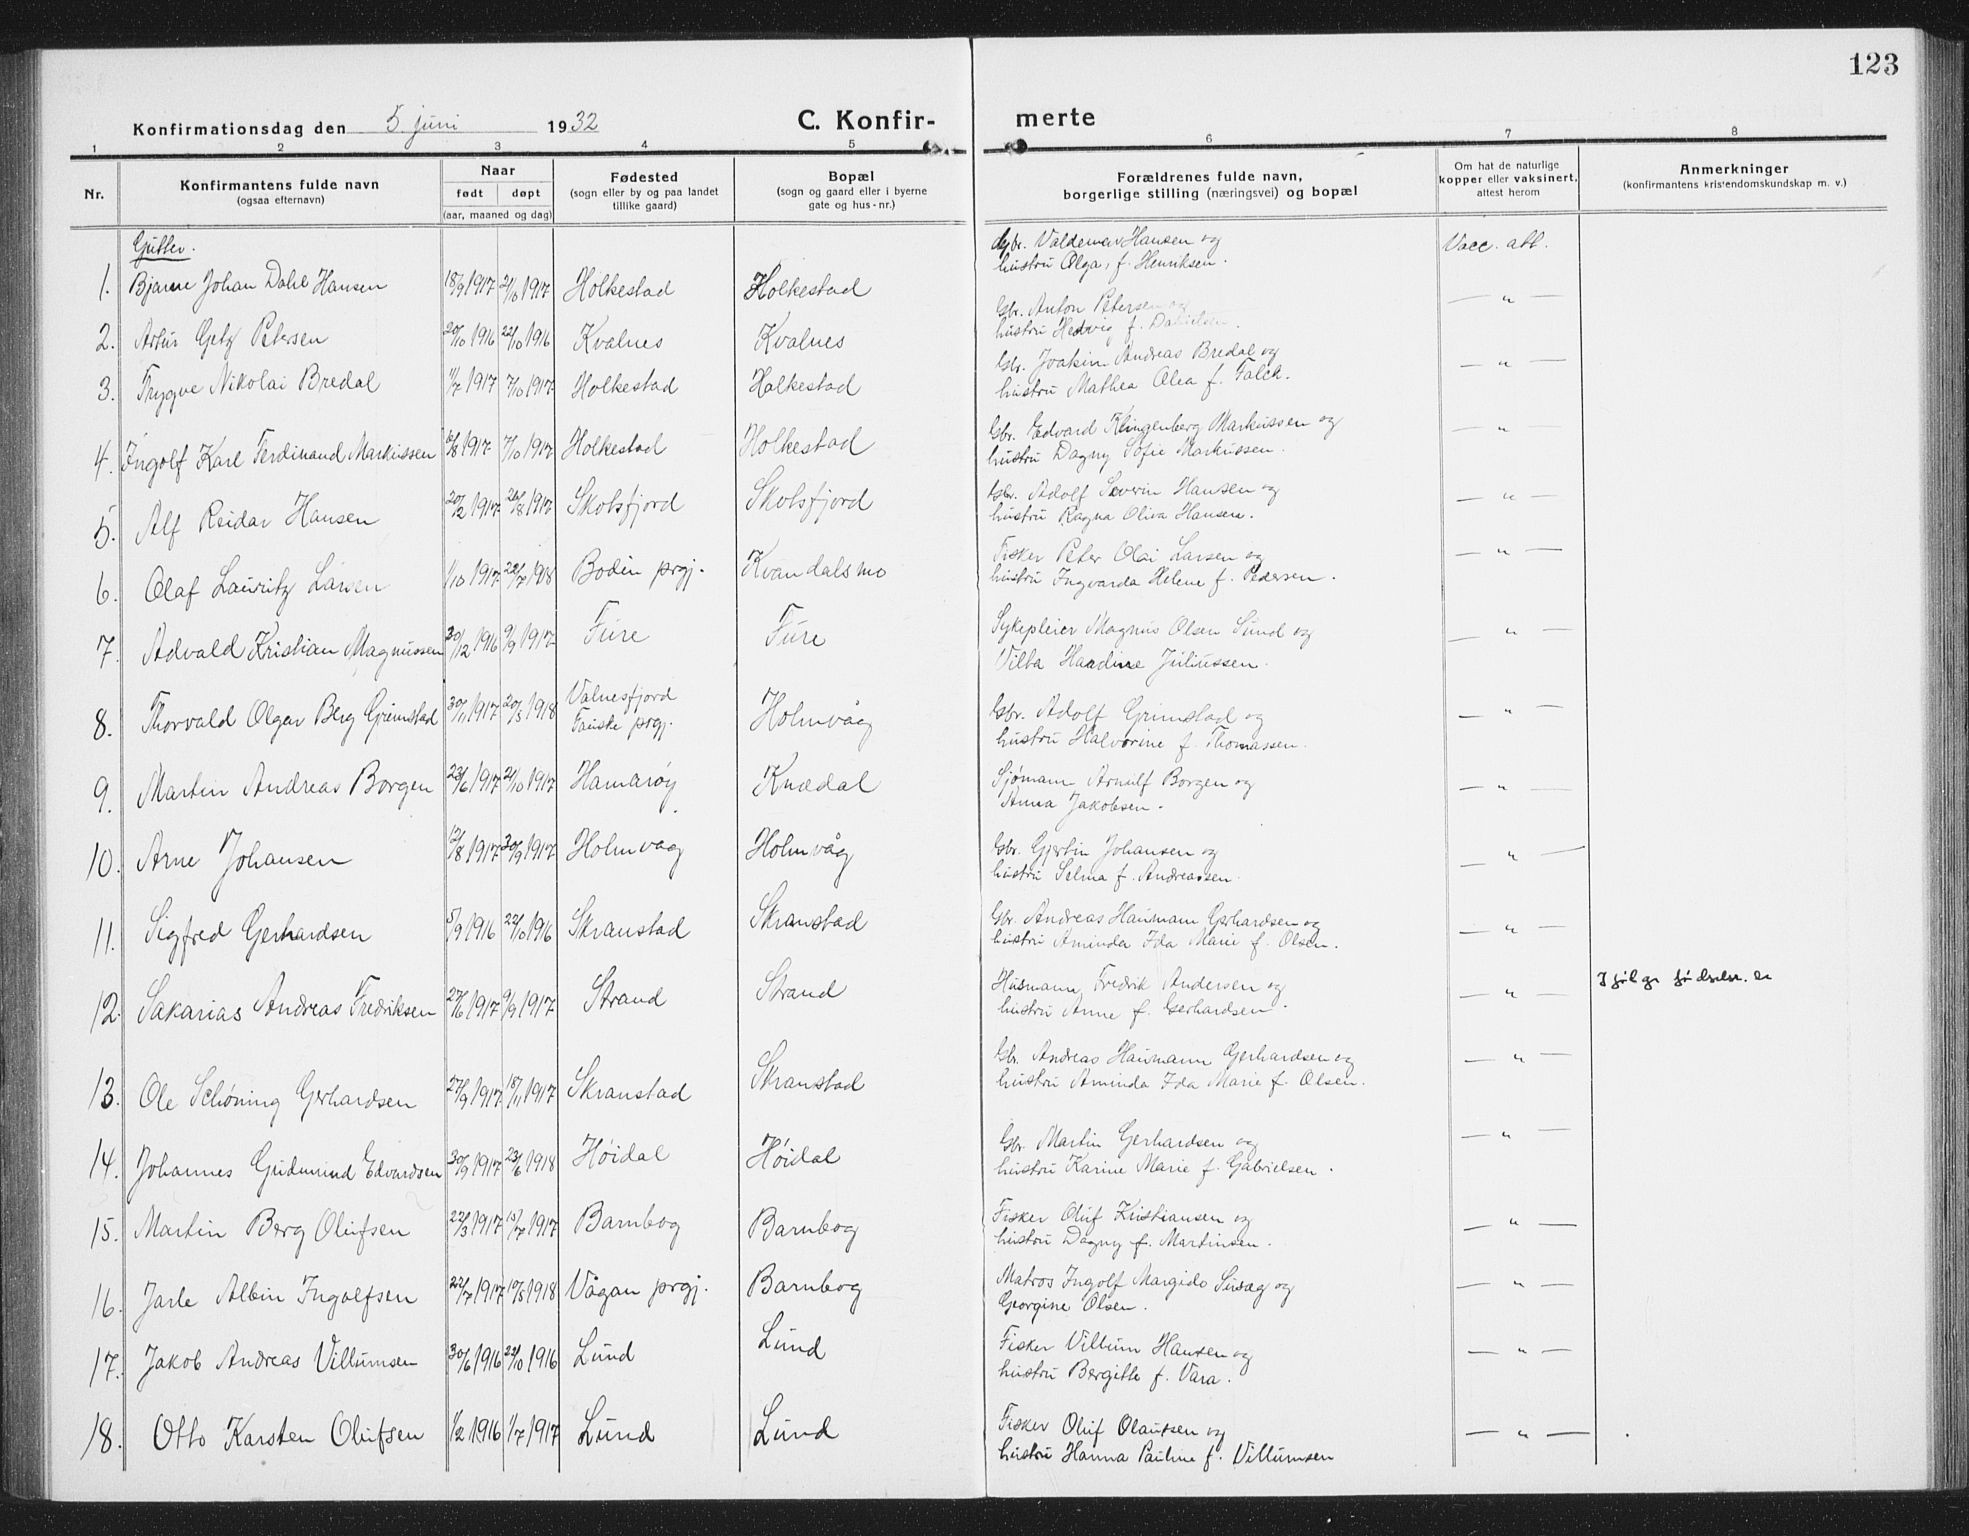 123
Konfirmationsdag den 5. juni 1932 C. Konfir- merte
1 2 3 4 5 6 7 8
Nr. Konfirmantens fulde navn (ogsaa efternavn) Naar født døpt (aar, maaned og dag) Fødested (sogn eller by og paa landet tillike gaard) Bopæl (sogn og gaard eller i byerne gate og hus-nr.) Forældrenes fulde navn, borgerlige stilling (næringsvei) og bopæl Om hat de naturlige kopper eller vaksinert, attest herom Anmerkninger (konfirmantens kristendomskundskap m. v.)
Gutter.
1. Bjarne Johan Dahl Hansen 18/9 1917 21/10 1917 Holkestad Holkestad Gbr. Valdemar Hansen og Vacc. att.
hustru Olga, f. Henriksen.
2. Artur Getz Petersen 20/10 1916 22/10 1916 Kvalnes Kvalnes Gbr. Anton Petersen og — " —
hustru Hedvig f. Danielsen.
3. Trygve Nikolai Bredal 11/7 1917 7/10 1917 Holkestad Holkestad Gbr. Joakim Andreas Bredal og — " —
hustru Mathea Olea f. Falch.
4. Ingolf Karl Ferdinand Markussen /8 1917 7/10 1917 Holkestad Holkestad Gbr. Edvard Klingenberg Markussen og — " —
hustru Dagny Sofie Markussen.
5. Alf Reidar Hansen 20/2 1917 26/8 1917 Skotsfjord Skotsfjord Gbr. Adolf Severin Hansen og — " —
hustru Ragna Oliva Hansen.
6. Olaf Lauritz Larsen 1/10 1917 22/7 1918 Bodin prgj. Kvandalsmo Fisker Peter Olai Larsen og — " —
hustru Ingvarda Helene f. Pedersen.
7. Advald Kristian Magnussen 30/12 1916 9/9 1917 Fure Fure Sykepleier Magnus Olsen Sund og — " —
Vilba Haadine Juliussen.
8. Thorvald Olgar Berg Grimstad 30/11 1917 20/5 1918 Valnesfjord Fauske prgj. Holmvåg Gbr. Adolf Grimstad og — " —
hustru Halvorine f. Thomassen.
9. Martin Andreas Borgen 23/6 1917 21/10 1917 Hamarøy Knædal Sjømann Arnulf Borgen og — " —
Anna Jakobsen.
10. Arne Johansen 12/8 1917 30/9 1917 Holmvåg Holmvåg Gbr. Gjertin Johansen og — " —
hustru Selma f. Andreassen.
11. Sigfred Gerhardsen 5/9 1916 22/10 1916 Skranstad Skranstad Gbr. Andreas Hausmann Gerhardsen og — " —
hustru Aminda Ida Marie f. Olsen.
12. Sakarias Andreas Fredriksen 27/6 1917 9/9 1917 Strand Strand Husmann Fredrik Andersen og — " —
hustru Anne f. Gerhardsen.
13. Ole Schøning Gerhardsen 27/9 1917 18/11 1917 Skranstad Skranstad Gbr. Andreas Hausmann Gerhardsen og — " —
hustru Aminda Ida Marie f. Olsen.
14. Johannes Gudmund Edvardsen 30/9 1917 23/6 1918 Høidal Høidal Gbr. Martin Gerhardsen og — " —
hustru Karine Marie f. Gabrielsen.
15. Martin Berg Olufsen 22/3 1917 15/7 1917 Barnbog Barnbog Fisker Oluf Kristiansen og — " —
hustru Dagny f. Martinsen.
16. Jarle Albin Ingolfsen 22/7 1917 10/5 1918 Vågan prgj. Barnbog Matros Ingolf Margido og — " —
Georgine Olsen.
17. Jakob Andreas Villumsen 30/6 1916 22/10 1916 Lund Lund Fisker Villum Hansen og — " —
hustru Bergitte f. Vara.
18. Otto Karsten Olufsen 1/2 1916 1/7 1917 Lund Lund Fisker Oluf Olaussen og — " —
hustru Hanna Pauline f. Villumsen